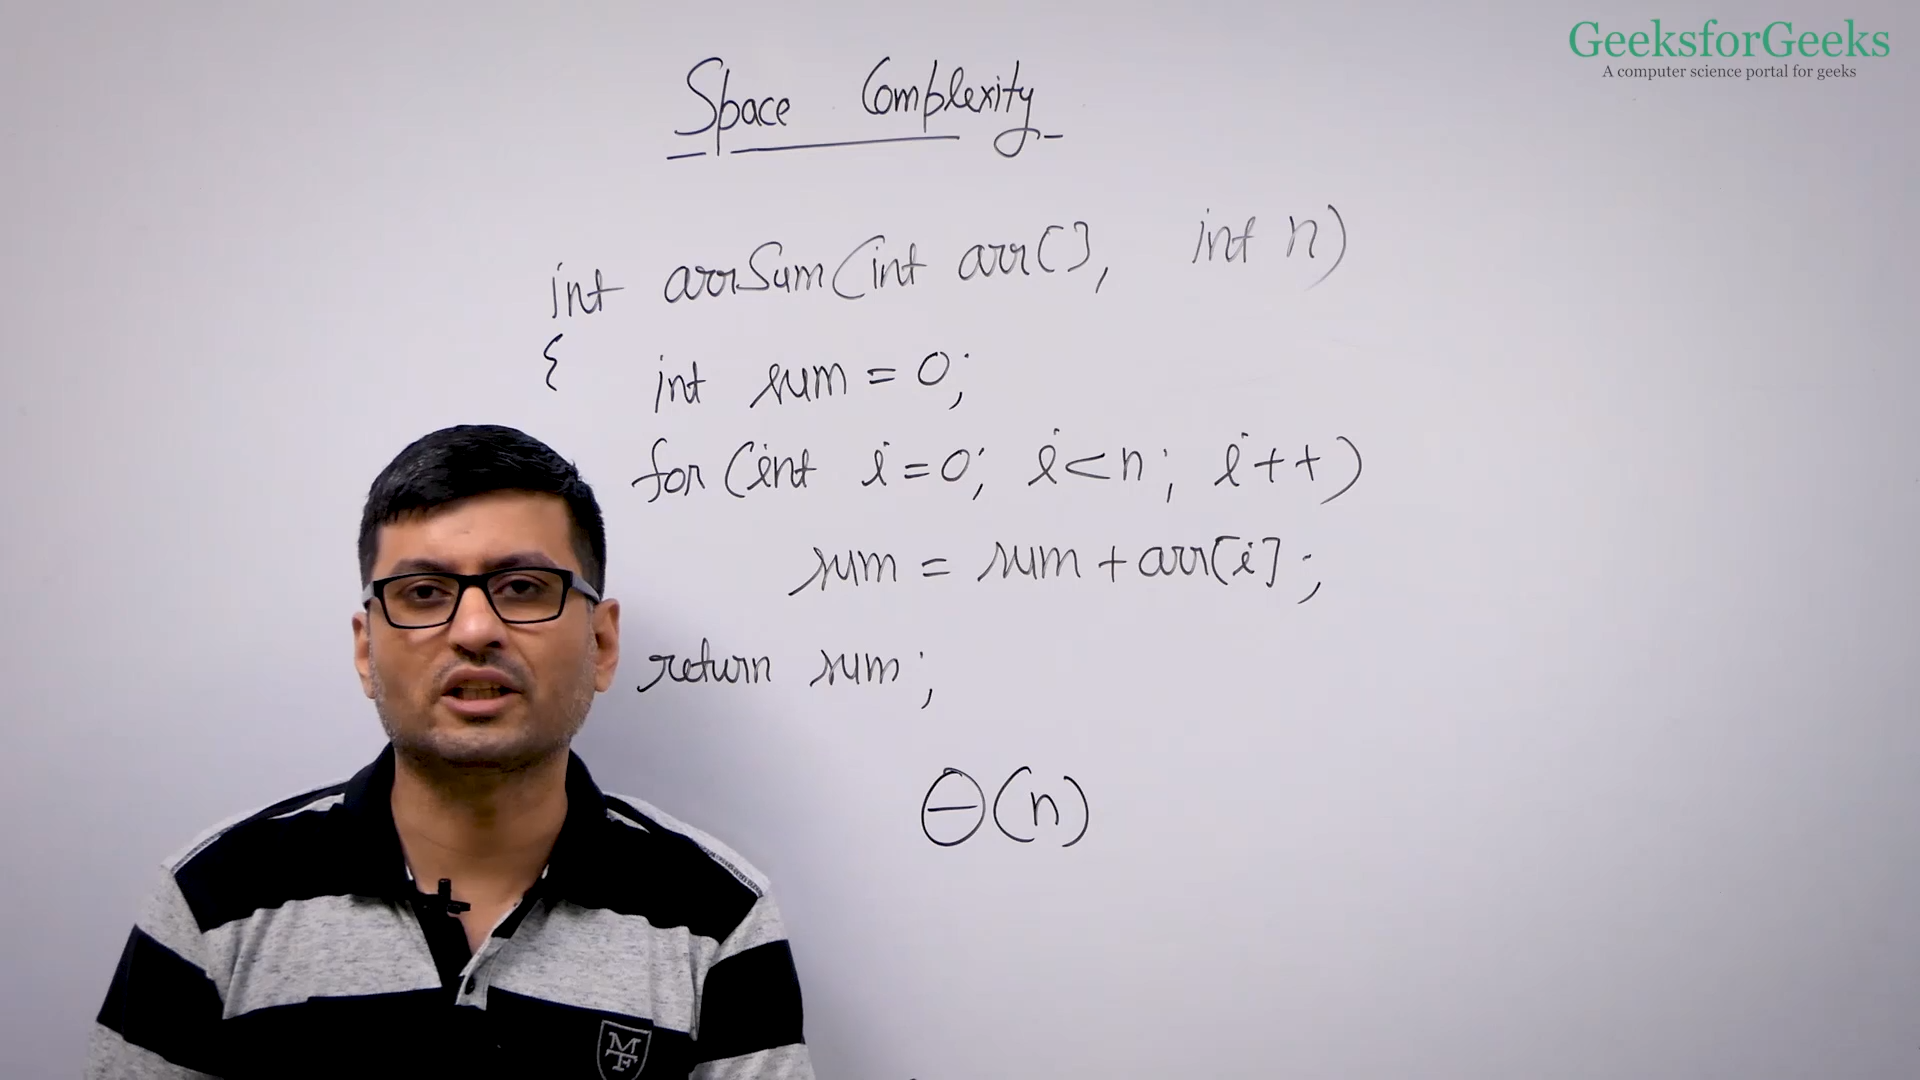 GeeksforGeeks
A computer science portal for geeks
Space Complexity
int arrSum(int arr[], int n)
{ int sum = 0;
for (int i=0; i<n; i++)
sum = sum + arr[i];
return sum;
Θ(n)
MF